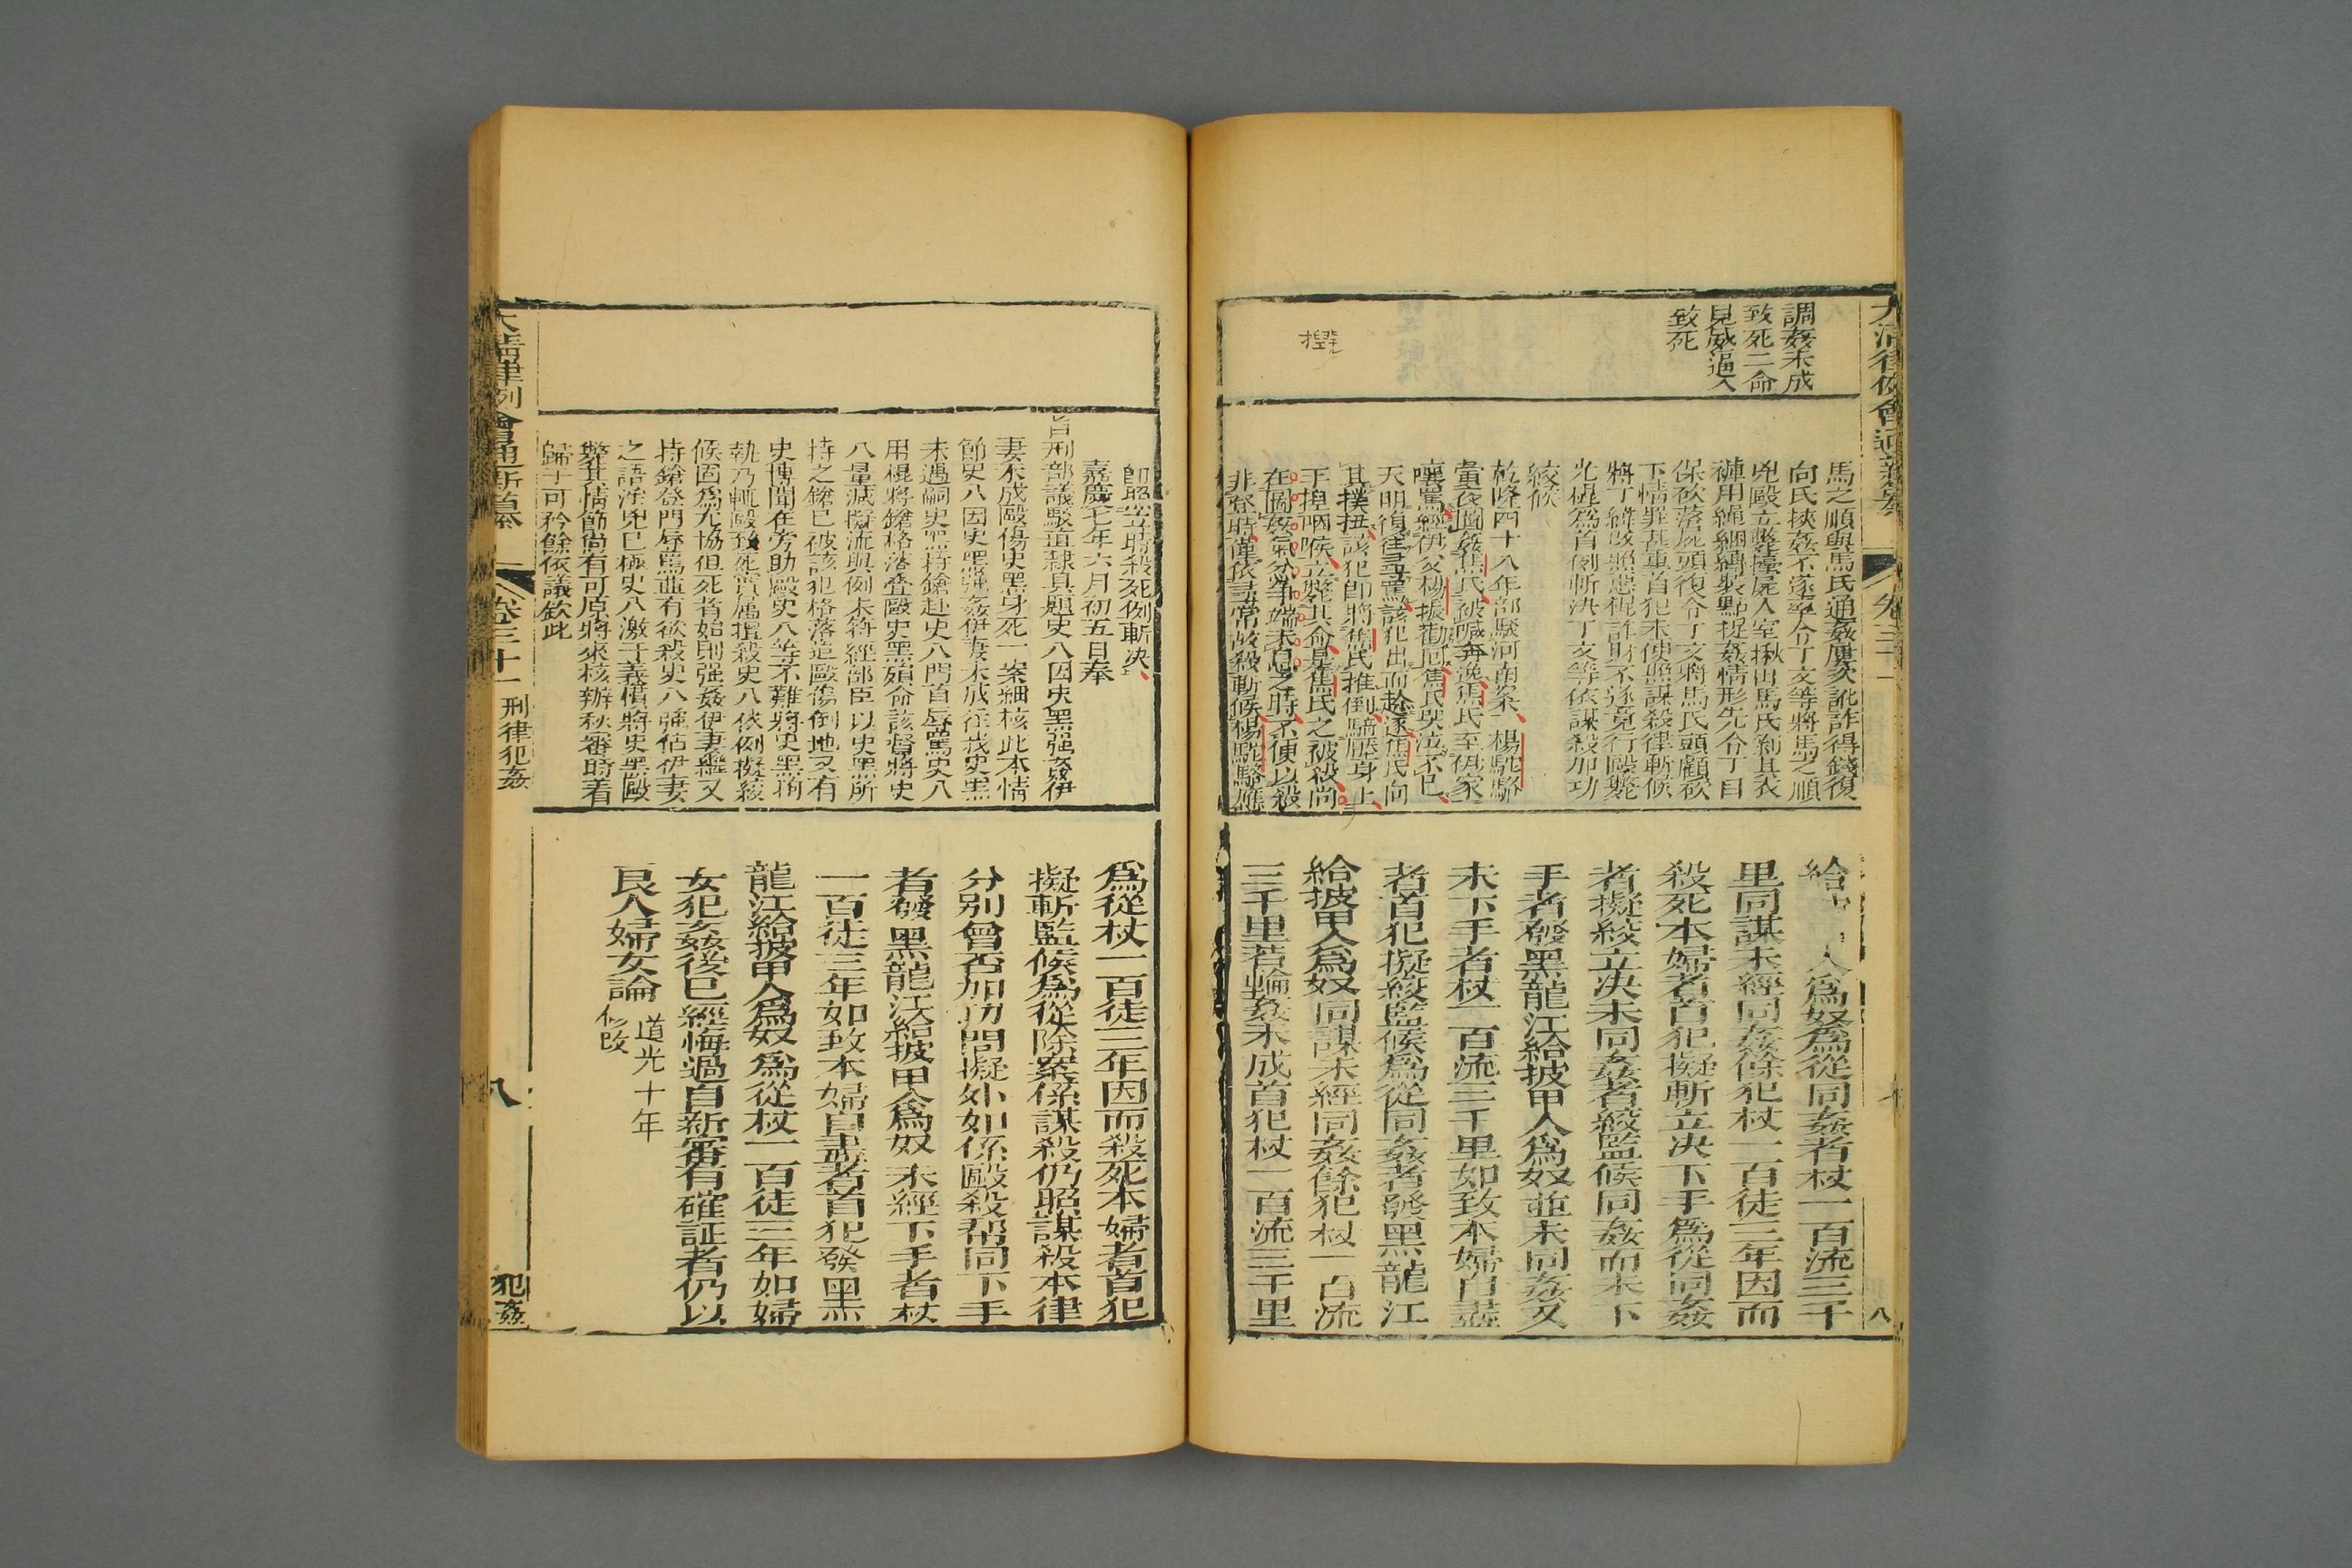 大清律例會通新纂
卷三十一
八
調姦未成
致死二命
見威逼人
致死
馬之順與馬氏通姦屢次訛詐得錢復
向氏挾姦不遂率令丁文等將馬之順
兇毆立斃擡屍入室揪出馬氏剝其衣
褲用繩綑縛裝點捉姦情形先令丁目
保砍落屍頭復令丁文將馬氏頭顱砍
下情罪甚重首犯未便照謀殺律斬候
將丁緯改照惡棍詐財不遂竟行毆斃
光棍為首例斬決丁文等依謀殺加功
絞候
乾隆四十八年部駁河南案一楊駝駱
黌夜圖姦焦氏被喊奔逸焦氏至伊家
嚷罵經伊父楊振勸回焦氏哭泣不已
天明復往尋罵該犯出而趕逐焦氏向
其撲扭該犯即將焦氏推倒騎壓身上
手揑咽喉立斃其命是焦氏之被殺尚
在圖姦氣忿爭端未息之時不便以殺
非登時僅依尋常故殺斬候楊駝駱應
給 人為奴為從同姦者杖一百流三千
里同謀未經同姦餘犯杖一百徒三年因而
殺死本婦者首犯擬斬立決下手為從同姦
者擬絞立決未同姦者絞監候同姦而未下
手者發黑龍江給披甲人為奴並未同姦又
未下手者杖一百流三千里如致本婦自盡
者首犯擬絞監候為從同姦者發黑龍江
給披甲人為奴同謀未經同姦餘犯杖一百流
三千里若輪姦未成首犯杖一百流三千里
即照登時殺死例斬決
嘉慶七年六月初五日奉
旨刑部議駁直隸具題史八因史黑強姦伊
妻未成毆傷史黑身死一案細核此本情
節史八因史黑強姦伊妻未成往找史黑
未遇嗣史黑將鎗赴史八門首辱罵史八
用棍將鎗格落疊毆史黑殞命該督將史
八量減擬流與例未符經部臣以史黑所
持之鎗已被該犯格落追毆傷倒地又有
史博聞在旁助毆史八等不難將史黑拘
執乃輒毆致死實屬擅殺史八依例擬絞
候固為允協但死者始則强姦伊妻繼又
持鎗登門辱罵並有欲殺史八強佔伊妻
之語淫兇已極史八激于義憤將史黑毆
斃其情節尚有可原將來核辦秋審時著
歸于可矜餘依議欽此
為從杖一百徒三年因而殺死本婦者首犯
擬斬監候為從除案係謀殺仍照謀殺本律
分別曾否加功問擬外如係毆殺幫同下手
者發黑龍江給披甲人為奴未經下手者杖
一百徒三年如致本婦自盡者首犯發黑
龍江給披甲人為奴為從杖一百徒三年如婦
女犯姦後已經悔過自新審有確証者仍以
良人婦女論 道光十年
修改
大清律例會通新纂
卷三十一 刑律犯姦
八
犯姦